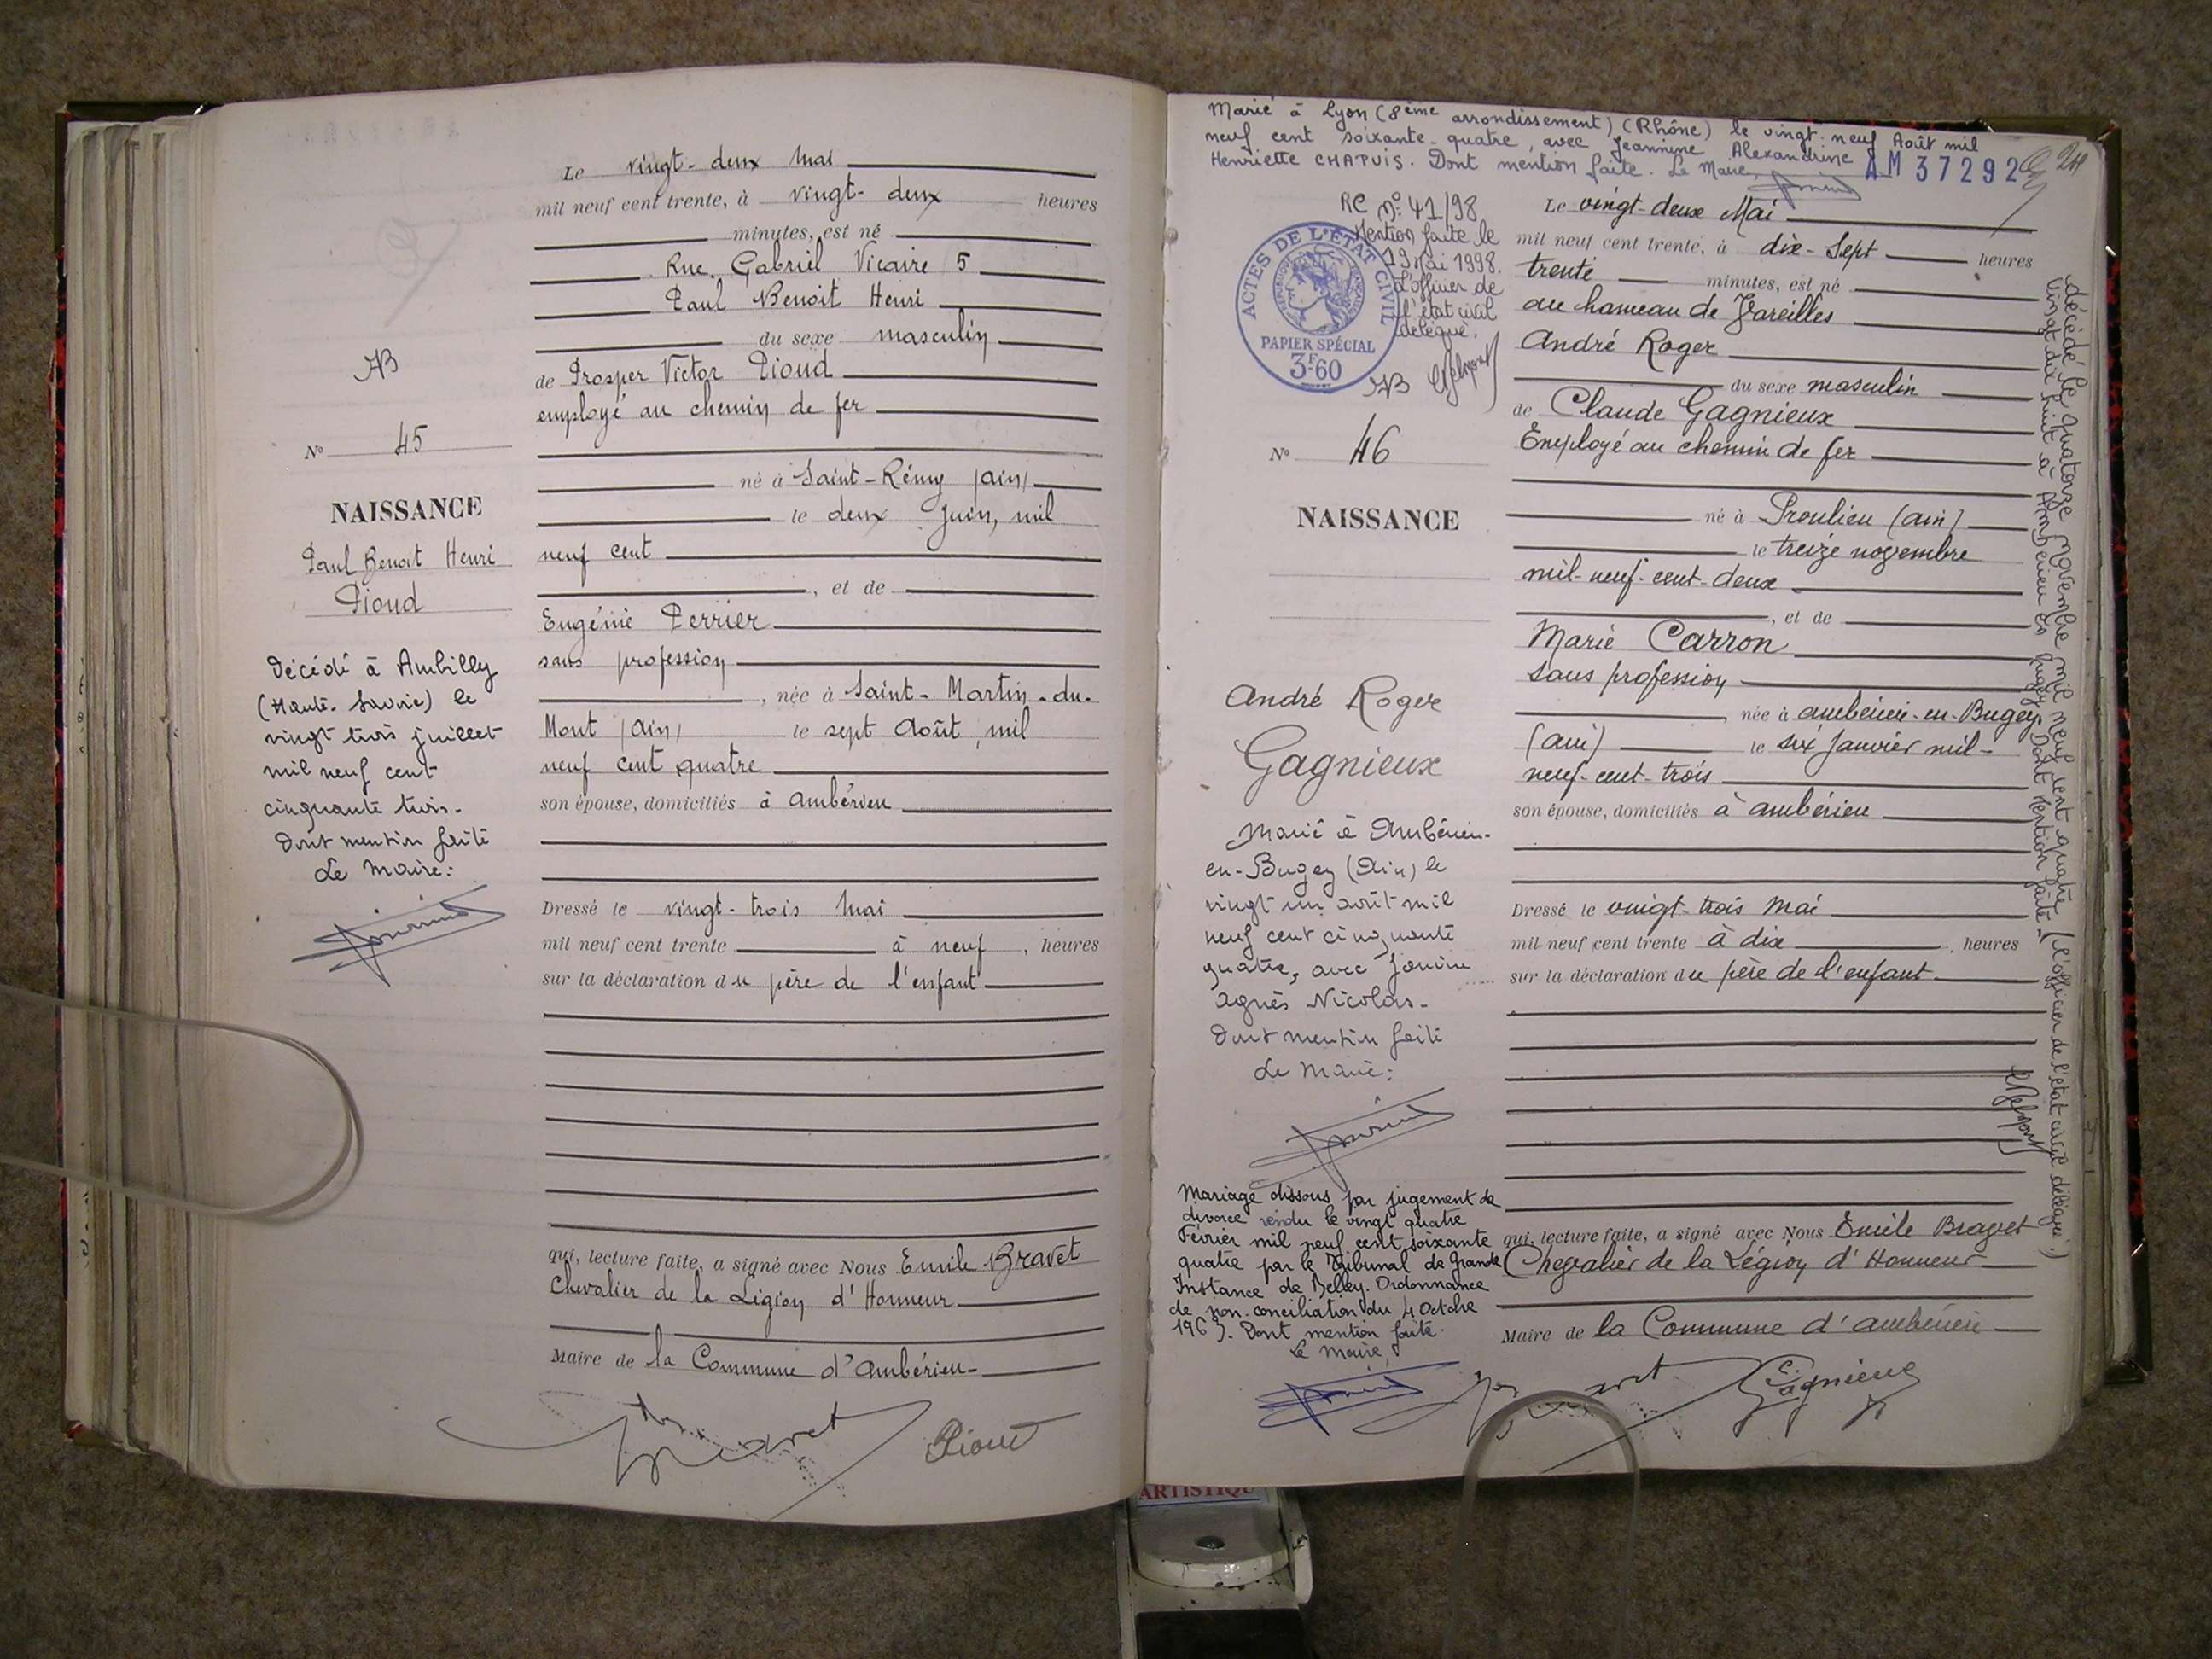 Le vingt-deux Mai
mil neuf cent trente, à vingt-deux heures
minutes, est né
Rue Gabriel Vicaire 5
Paul Benoit Henri
du sexe masculin
de Prosper Victor Pioud
employé au chemin de fer
né à Saint-Rémy (Ain)
le deux Juin, mil
neuf cent
, et de
Eugénie Perrier
sans profession
, née à Saint-Martin-du-
Mont (Ain) le sept Août, mil
neuf cent quatre
son épouse, domiciliés à Ambérieu
Dressé le vingt-trois Mai
mil neuf cent trente à neuf, heures
sur la déclaration du père de l'enfant
qui, lecture faite, a signé avec Nous Emile Bravet
Chevalier de la Légion d'Honneur
Maire de la Commune d'Ambérieu-
Bravet
Pioud
AB
No 45
NAISSANCE
Paul Benoit Henri
Pioud
Décédé à Ambilly
(Haute-Savoie) le
vingt trois juillet
mil neuf cent
cinquante trois.
Dont mention faite
Le Maire:
Marié à Lyon (8ème arrondissement) (Rhône) le vingt-neuf Août mil
neuf cent soixante-quatre, avec Jeannine Alexandrine
Henriette CHAPUIS. Dont mention faite. Le Maire,
AM 37292
24
RC No 41/98
Mention faite le
19 Mai 1998.
L'officier de
l'état civil
délégué.
ACTES DE L'ETAT CIVIL
PAPIER SPÉCIAL
3F60
AB
No 46
NAISSANCE
André Roger
Gagnieux
Marié à Ambérieu-
en-Bugey (Ain) le
vingt un août mil
neuf cent cinquante
quatre, avec Janine
Agnès Nicolas-
Dont mention faite
Le Maire:
Mariage dissous par jugement de
divorce rendu le vingt quatre
Février mil neuf cent soixante
quatre par le Tribunal de Grande
Instance de Belley. Ordonnance
de non-conciliation du 4 Octobre
1963. Dont mention faite.
Le Maire,
Le vingt-deux Mai
mil neuf cent trente, à dix-sept heures
trente minutes, est né
au hameau de Vareilles
André Roger
du sexe masculin
de Claude Gagnieux
Employé au chemin de fer
né à Proulieu (Ain)
le treize novembre
mil-neuf-cent-deux
, et de
Marie Carron
sans profession
née à Ambérieu-en-Bugey
(Ain) le six Janvier mil-
neuf-cent-trois
son épouse, domiciliés à Ambérieu
Dressé le vingt-trois Mai
mil neuf cent trente à dix heures
sur la déclaration du père de l'enfant
qui, lecture faite, a signé avec Nous Emile Bravet
Chevalier de la Légion d'Honneur
Maire de la Commune d'Ambérieu
Bravet
Gagnieux
décédé le quatorze novembre mil neuf cent quatre
vingt dix huit à Ambérieu en Bugey. Dont Mention faite. (L'officier de l'état civil délégué.)
ARTISTIQU